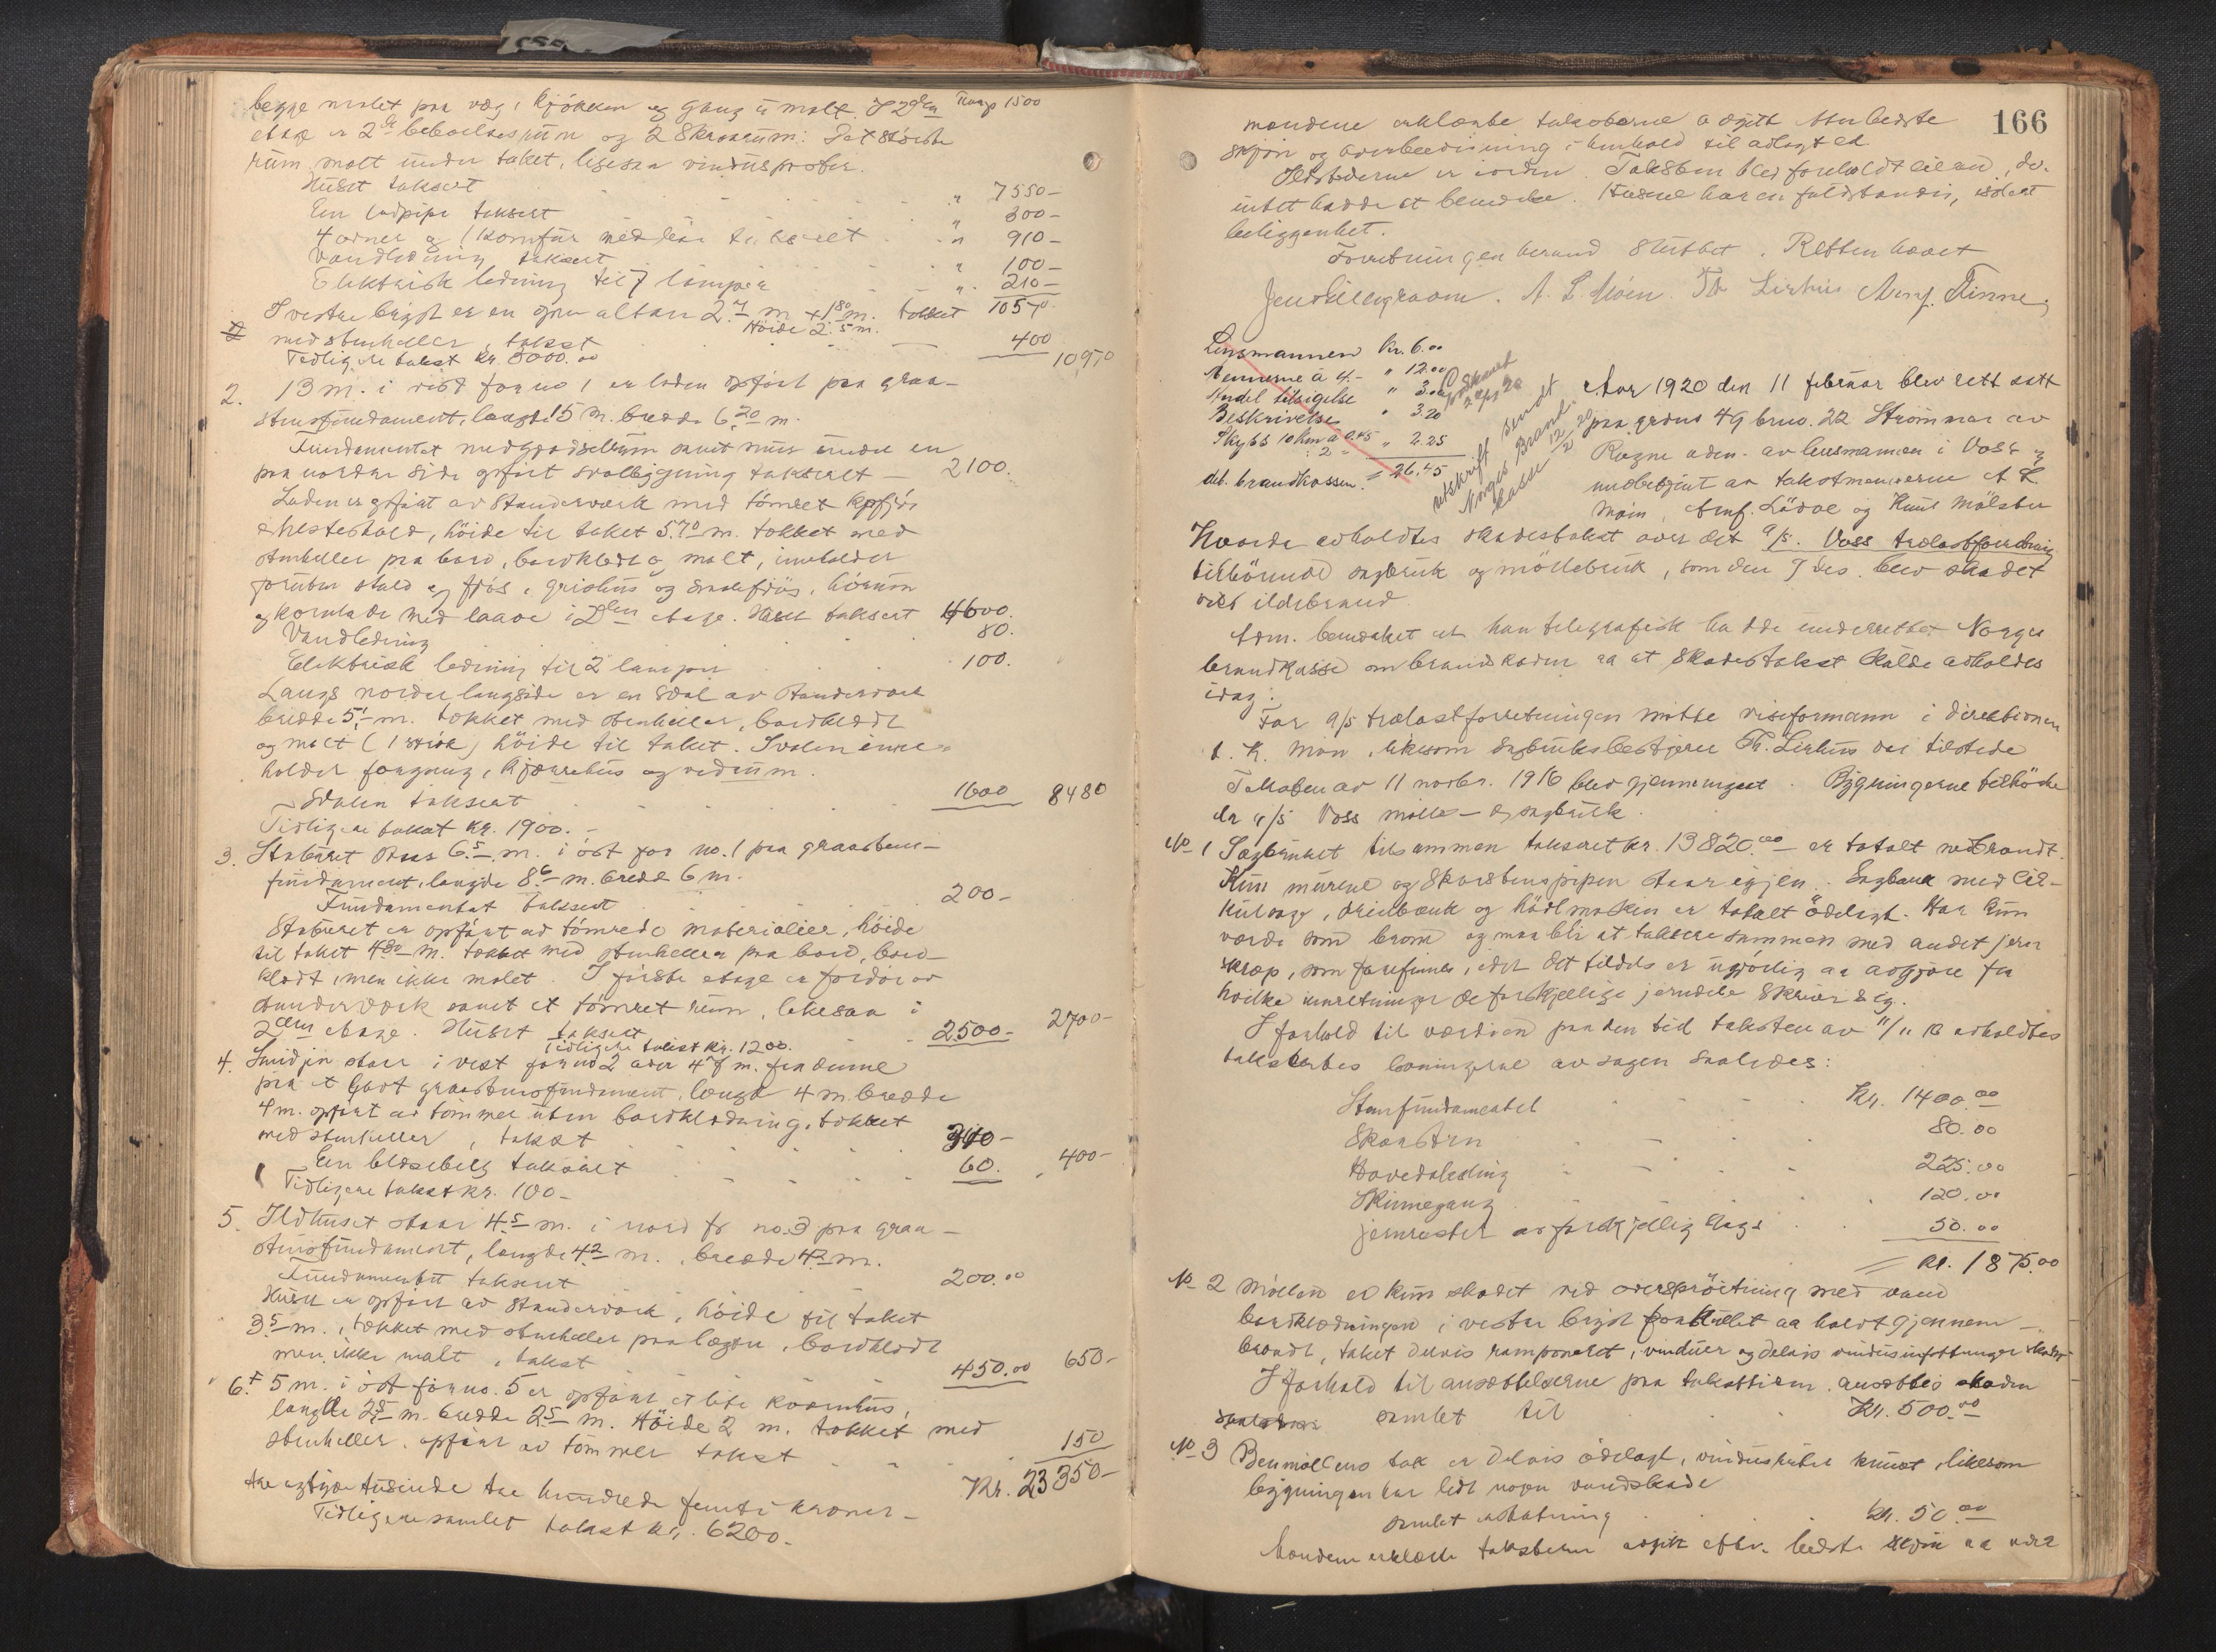 begge malet paa væg, kjøkken og gang u malt. I 2den Transp 1500
etage er 2de beboelsesrum og 2 Skraarum: Det største
rum malt under taket, ligesaa vindusposter.
Huset taksert " 7550-
En ladpipe taksert " 300-
4 ovner og 1 komfur med taksert " 910-
Vandledning taksert " 100-
Elektrisk ledning til 7 lamper " 210-
I vestre bygd er en open altan 2.7 m × 1.80 m. tækket 1057
Høide 2.5 m.
med stenheller, takst 400
Tidligere takst kr. 3000.00 10970
2. 13 m. i vest for no 1 er laden opført paa graa-
stensfundament, længde 15 m. bredde 6.70 m.
Fundamentet med gjødselrum samt mur under en
paa nordre side opført svalbygning taksert — 2100.
Laden er opført av Standerværk med tømret kofjøs
& hestestald, høide til taket 5.70 m. tækket med
stenheller paa bord, bordklædt og malt, inneholder
foruten stald og fjøs, grishus og smalefjøs, hörum
og kornlade med laave i 2den etage. Huset taksert 4600.
Vandledning 80.
Elektrisk ledning til 2 lamper 100.
Langs nordre langside er en sval av Standerværk
bredde 5.1 m. tækket med stenheller, bordklædt
og malt (1 strøk) höide til taket. Svalen inne-
holder forgang, kjærrehus og vedrum.
Svalen taksert 1600 8480
Tidligere takst kr. 1900.-
3. Staburet staar 6.5 m. i øst for no. 1 paa graastens-
fundament, længde 8.6 m. bredde 6 m.
Fundamentet taksert 200-
Staburet er opført av tømrede materialier, høide
til taket 4.80 m. tækket med stenheller paa bord, bord-
klædt, men ikke malet. I første etage er fordør av
standerværk samt et tömret rum, likesaa i
2den etage. Huset taksert 2500- 2700-
Tidligere takst kr. 1200.
4. Smidjen staar i vest for no 2 47 m. fra denne
paa et godt graastensfundament, længde 4 m. bredde
4 m. opført av tømmer uten bordklædning, tækket
med stenheller, takst 340-
En blæsebelg taksert 60. 400-
Tidligere takst kr. 100-
5. Ildhuset staar 4.5 m. i nord for no. 3 paa graa-
stensfundament, længde 4.2 m., bredde 4.2 m.
Fundamentet taksert 200.00
Huset er opført av Standerværk, höide til taket
3.5 m., tækket med stenheller paa lægter, bordklædt
men ikke malt, takst 450.00 650-
6. 5 m. i øst for no. 5 er opført et lite kvernhus,
længde 2.5 m. bredde 2.5 m. Höide 2 m. tækket med
stenheller. opført av tømmer takst 150
Kr. 23350-
tre og tyve tusinde tre hundrede femti kroner -
Tidligere samlet takst kr. 6200.-
166
mændene erklærte taksterne avgit efter bedste
skjøn og overbevisning i henhold til avlagt ed.
Ildstederne er i orden. Taksten blev foreholdt eieren, der
intet hadde at bemerke. Husene har en isolert
beliggenhet.
Forretningen herved sluttet. Retten hævet
Jens Lillegraven. A. L. Moen. Th Lirhus Arnf. Finne
Lensmannen kr. 6.00
Mennerne à 4.- " 12.00
Andel tilsigelse " 3.00
Beskrivelse " 3.20
Skyds 10 km à 0.45 : 2 " 2.25
deb. brandkassen. = 26.45
Utskrift sendt
Norges Brand-
kasse 12/2 20
Aar 1920 den 11 februar blev rett satt
paa grdno 49 brno. 22 Strømmar av
Rogne adm. av lensmannen i Voss og
mötbetjent av takstmennerne A L
Moin, Arnf. Lödve og Knut Mölster
Hvorda avholdtes skadestakst over det a/s. Voss trælastforretning
tilhörende sagbruk og möllebruk, som den 7 ds. blev skadet
ved ildsbrand.
Adm. bemerket at han telegrafisk hadde underrettet Norges
brandkasse om brandskaden aa at skadestakst skulde avholdes
idag.
For a/s trælastforretningen mötte viseformann i direktionen
L. K. Møn, likesom sagbruksbestyrer Th. Lirhus var tilstede
Taksten av 11 novbr. 1916 blev gjennemgaat. Bygningerne tilhörte
da a/s Voss mölle- og sagbruk.
No 1 Sagbruket tilsammen taksert kr. 13820.00 er totalt nedbrandt.
Kun murene og Skorstenspipen staar igjen. Sagbænk med Cir-
kulsag, dreiebænk og hövlmaskin er totalt ödelagt. Har kun
værdi som brom og maa bli at taksere sammen med andet jern
skrap, som forefinnes, idet det tildels er ugjørlig aa avgjøre fra
hvilke innretninger de forskjellige jerndele skriver sig.
I forhold til værdien paa den tid taksten av 11/11 16 avholdtes
takstertes levningerne av sagen saaledes:
Stenfundamentet Kr. 1400.00
Skorsten 80.00
Hovedaksling 225.00
Skinnegang 120.00
jernrester av forskjellig slags 50.00
= kr. 1875.00
No 2 Möllen er kun skadet ved oversprøitning med vand
bordklædningen i vestre bygd forkullet aa holdt gjennem-
brændt, taket delvis ramponeret, vinduer og delvis vindusinfatninger skadet
I forhold til ansættelserne paa taksttiden ansættes skaden
samlet til Kr. 500.00
No 3 Benmöllens tak er delvis ödelagt, vindusruter knust, likesom
bygningen har lidt noen vandskade
samlet erstatning kr. 50.00
Mændene erklærte taksterne avgit efter bedste skjøn aa over